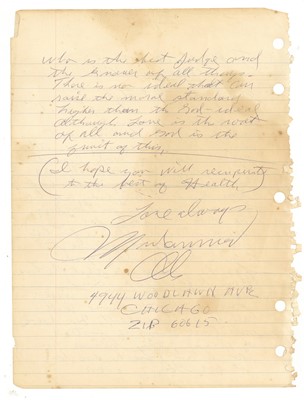 who is the best Judge and
the knower of all things.
There is no ideal that can
raise the moral standard
higher than the God-ideal
Although Love is the root
of all and God is the
fruit of this,
(I hope you will recuperate
to the best of Health)
Love always
Muhammad
Ali
4944 WOODLAWN AVE
CHICAGO
ZIP 60615